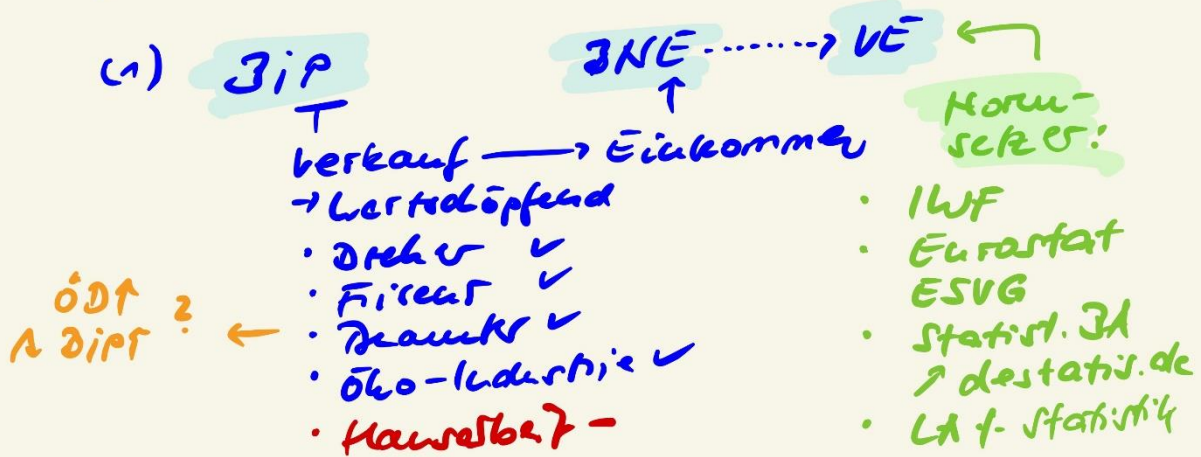 (1) BIP BNE → VE ←
Norm-
setzer:
Verkauf → Einkommen
→ wertschöpfend
· Dreher ✓
· Friseur ✓
· Beamter ✓
· Öko-Industrie ✓
· Hausarbeit –
ÖD↑
BIP↑ ? ←
· IWF
· Eurostat
ESVG
· Statist. BA
↗ destatis.de
· LA f. Statistik